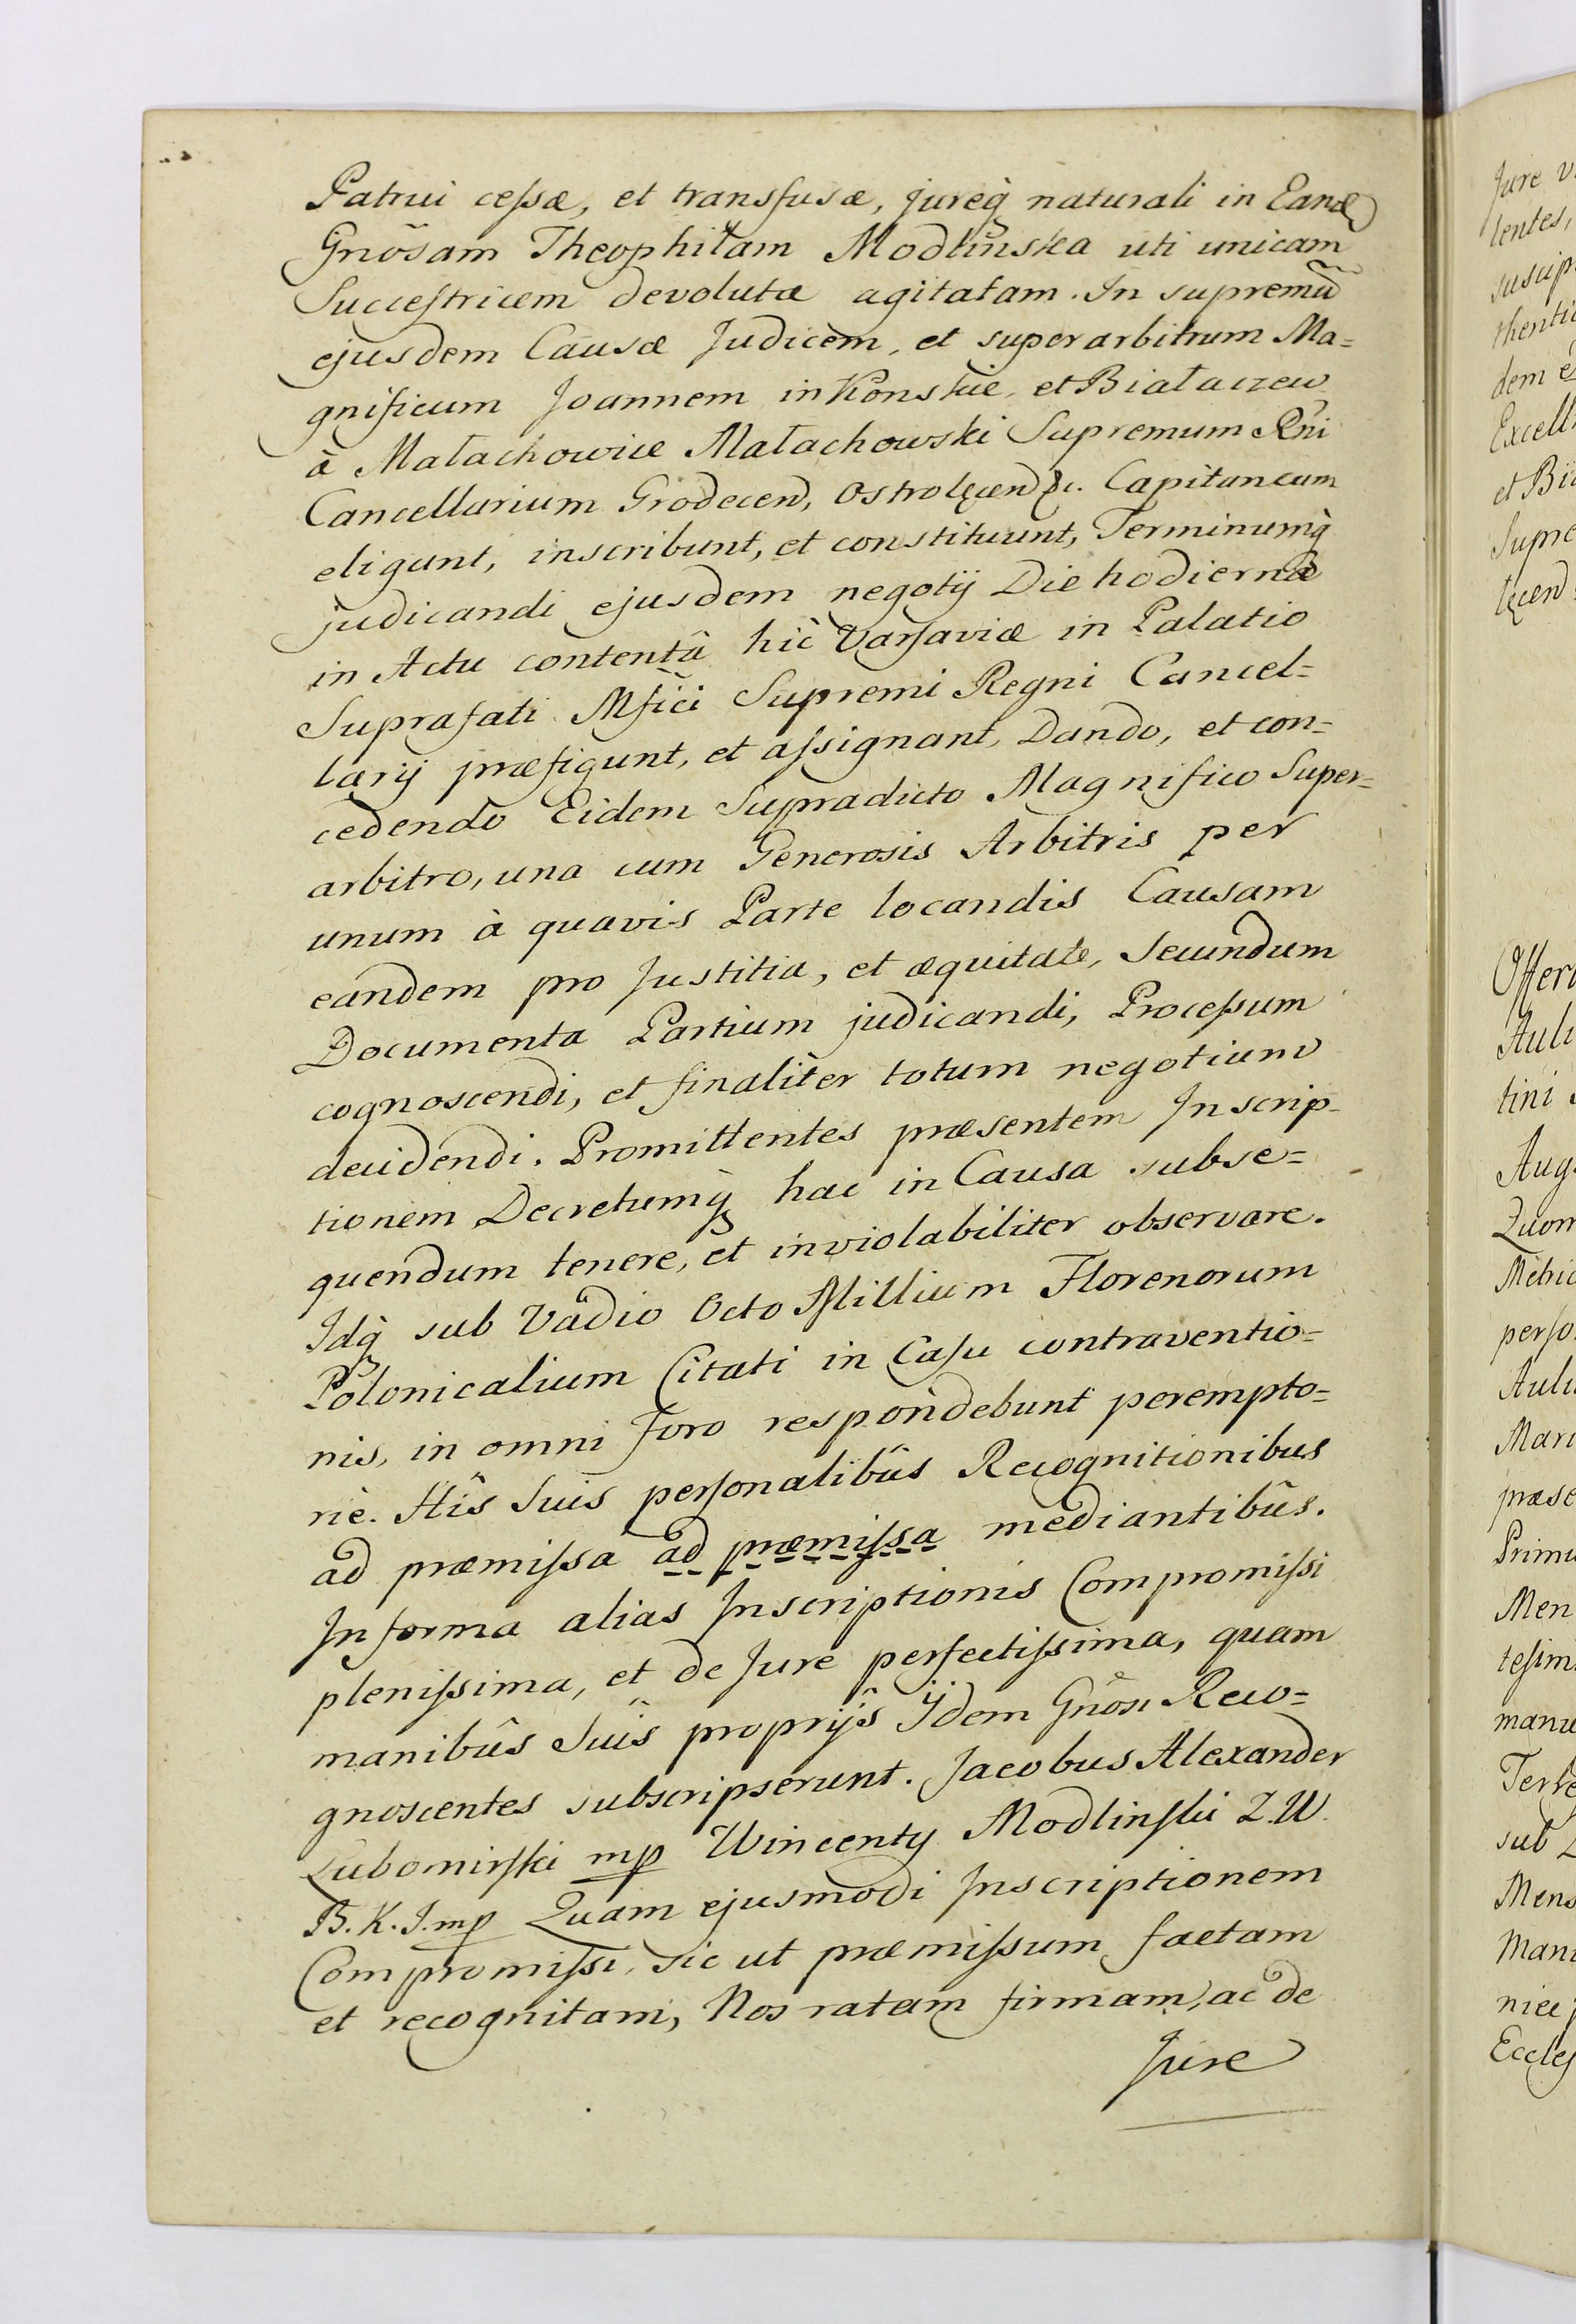 Patrui cessæ, et transfusæ, jureq̀ naturali in Eand
Gnõsam Theophiłam Modlińska uti unicam
Succestricem devolutæ agitatam. In supremũ
ejusdem Causæ Judicem, et superarbitrum Ma=
gnificum Joannem in Konskie, et Białaczew
à Małachowice Małachowski Supremum Rñi
Cancellarium Grodecen, Ostrołęcen &c. Capitaneum
eligunt, inscribunt, et constituunt, Terminumq̀
judicandi ejusdem negotij Die hodierna
in Actu contentâ hic Varsaviæ in Palatio
Suprafati Mfici Supremi Regni Cancel=
larij præfigunt, et assignant, Dando, et con=
cedendo Eidem Supradicto Magnifico Super=
arbitro, una cum Generosis Arbitris per
unum à quavis Parte locandis Causam
eandem pro Justitia, et æquitate, Secundum
Documenta Partium judicandi, Processum
cognoscendi, et finaliter totum negotium
decidendi. Promittentes præsentem Inscrip-
tionem Decretumq̀ hac in Causa subse=
quendum tenere, et inviolabiliter observare.
Idq̀ sub Vadio Octo Millium Florenorum
Polonicalium Citati in Casu contraventio=
nis, in omni Foro respondebunt perempto=
riè. Hîs Suis personalibûs Recognitionibus
ad præmissa ad præmissa mediantibûs.
In forma alias Inscriptionis Compromissi
plenissima, et de Jure perfectissima, quam
manibûs Suis proprijs Ijdem Gñosi Reco=
gnoscentes subscripserunt. Jacobus Alexander
Lubomirski mp Wincenty Modlinski Z. W.
B. K. J. mp Quam ejusmodi Inscriptionem
Compromissi, sic ut præmissum factam
et recognitam, Nos ratam firmam, ac de
Jure
Jure
lentes,
suscip
thentic
dem
Excell
et
Supre
lęcen
Offer
Auli
tini
Aug
Quom
Metric
perso
Auli
Mari
præse
Primu
Men
tesim
manu
sub
Mens
Manu
Eccles